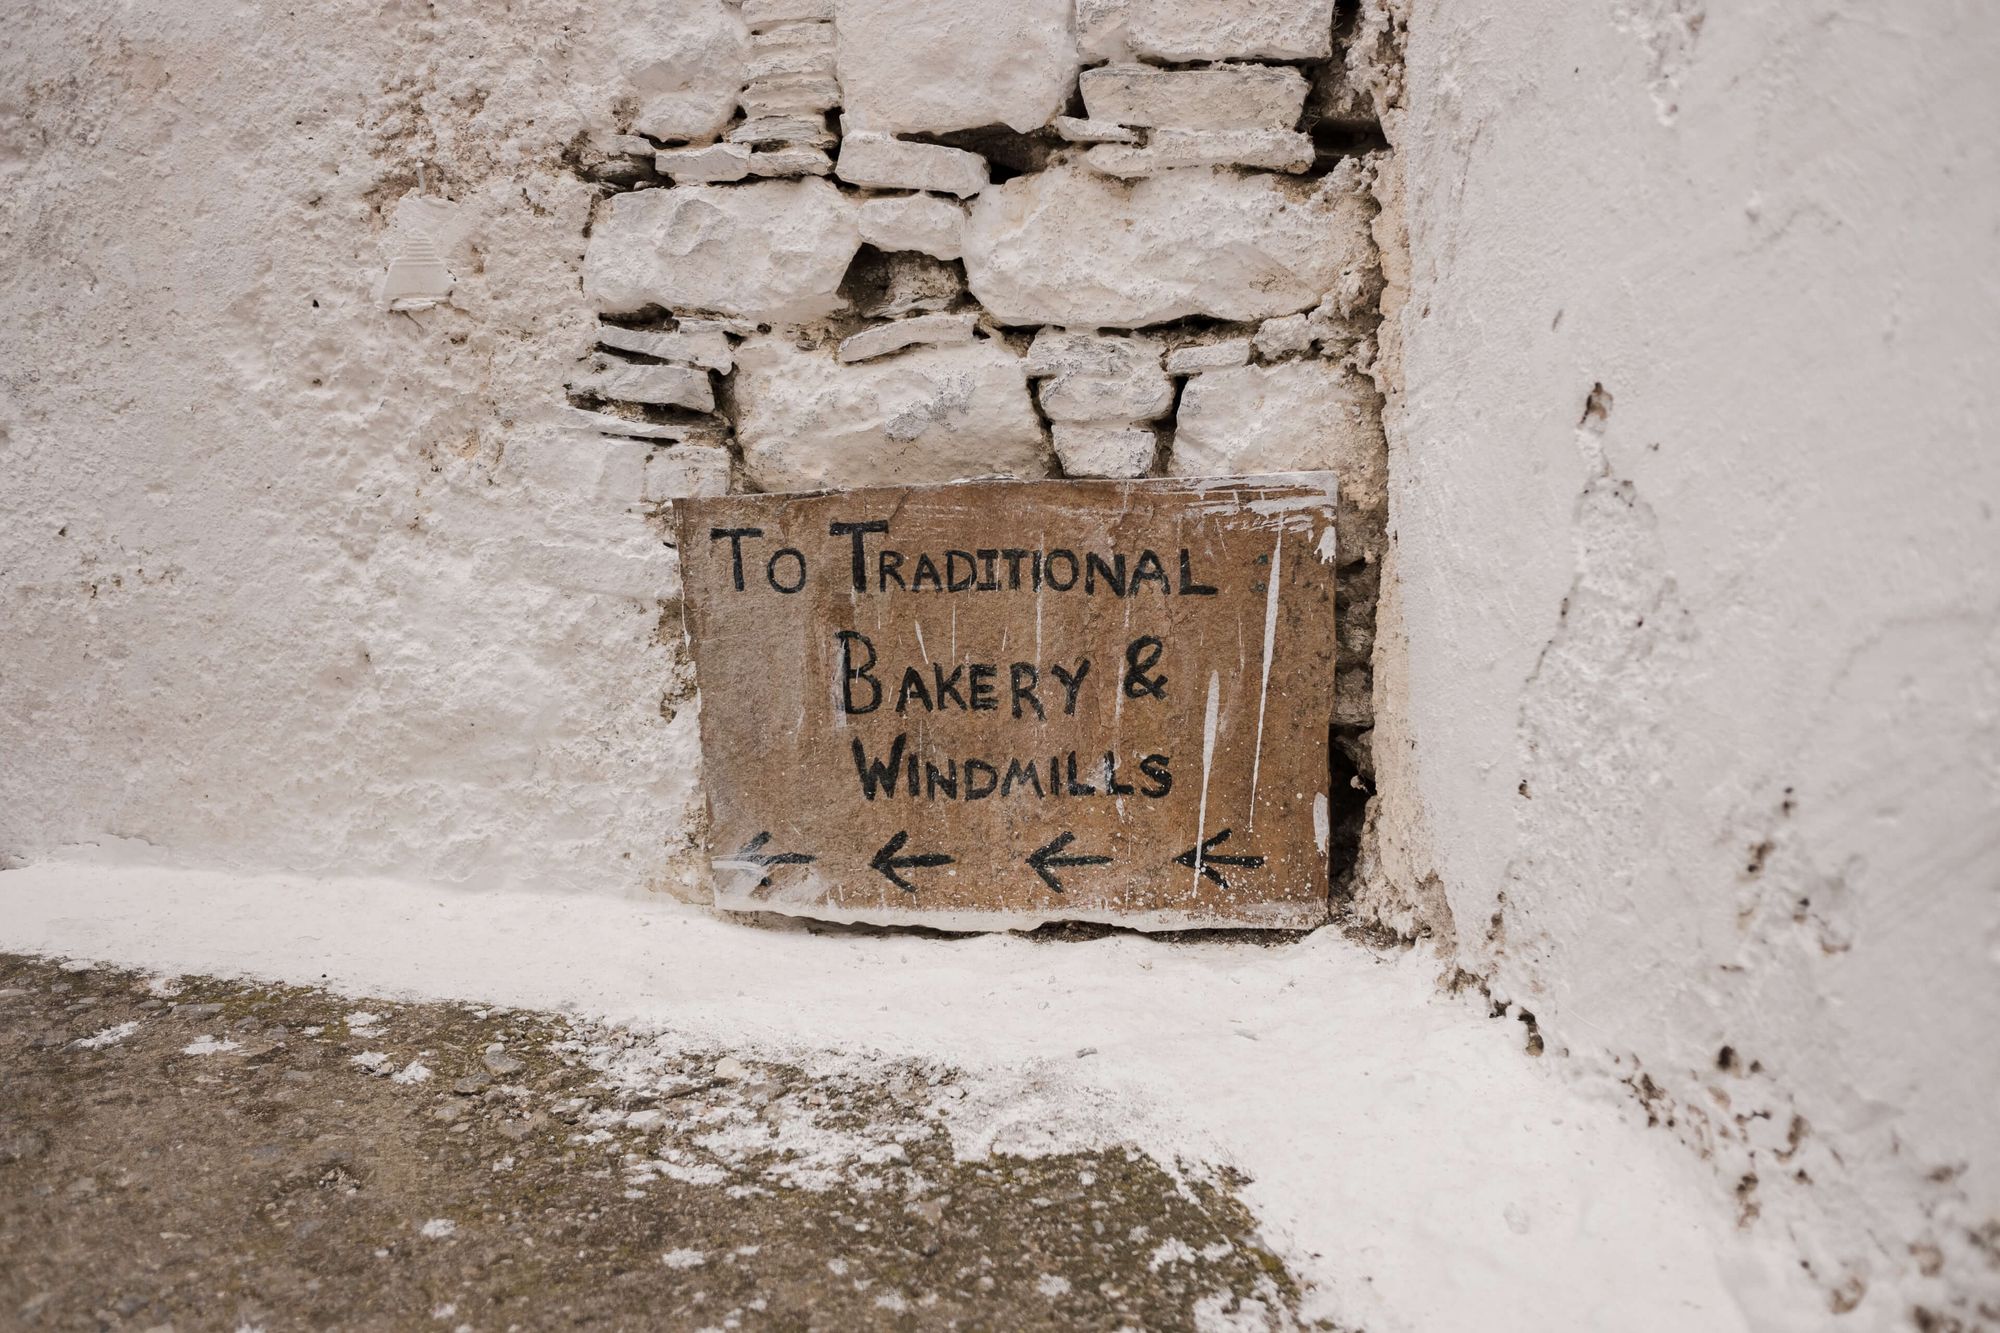 To Traditional
Bakery &
Windmills
← ← ← ←